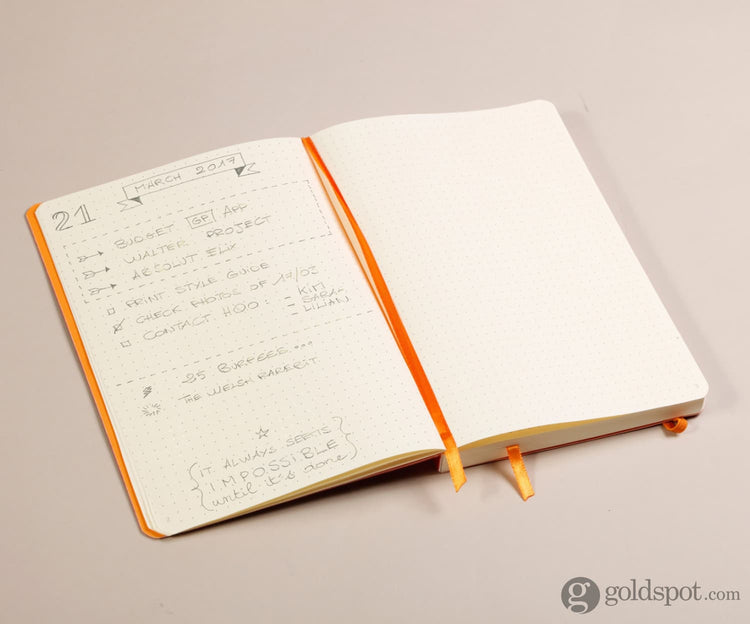 MARCH 2017
21
BUDGET GF APP
WALTER PROJECT
ABSOLUT ELIX
PRINT STYLE GUIDE
CHECK PHOTOS OF 17/03
CONTACT HOO: - KIM
- SARAH
- LILIAN
25 BURPEES...
THE WELSH RAREBIT
IT ALWAYS SEEMS
IMPOSSIBLE
until it's done
g goldspot.com